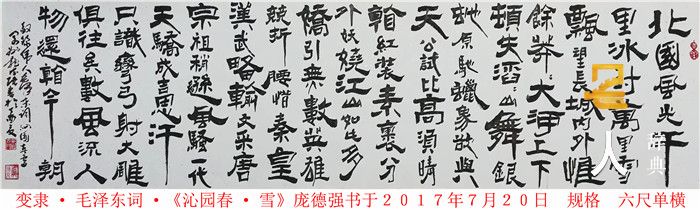 北國風光千
里冰封萬里雪
飄望長城内外惟
餘莽〻大河上下
頓失滔〻山舞銀
蛇原馳蠟象欲與
天公試比高須晴
看紅裝素裹分
外妖嬈江山如此多
嬌引無數英雄
競折腰惜秦皇
漢武略輸文采唐
宗祖稍遜風騷一代
天驕成吉思汗
只識彎弓射大雕
俱往矣數風流人
物還看今朝
人 辞典
变隶・毛泽东词・《沁园春・雪》庞德强书于2017年7月20日 规格 六尺单横